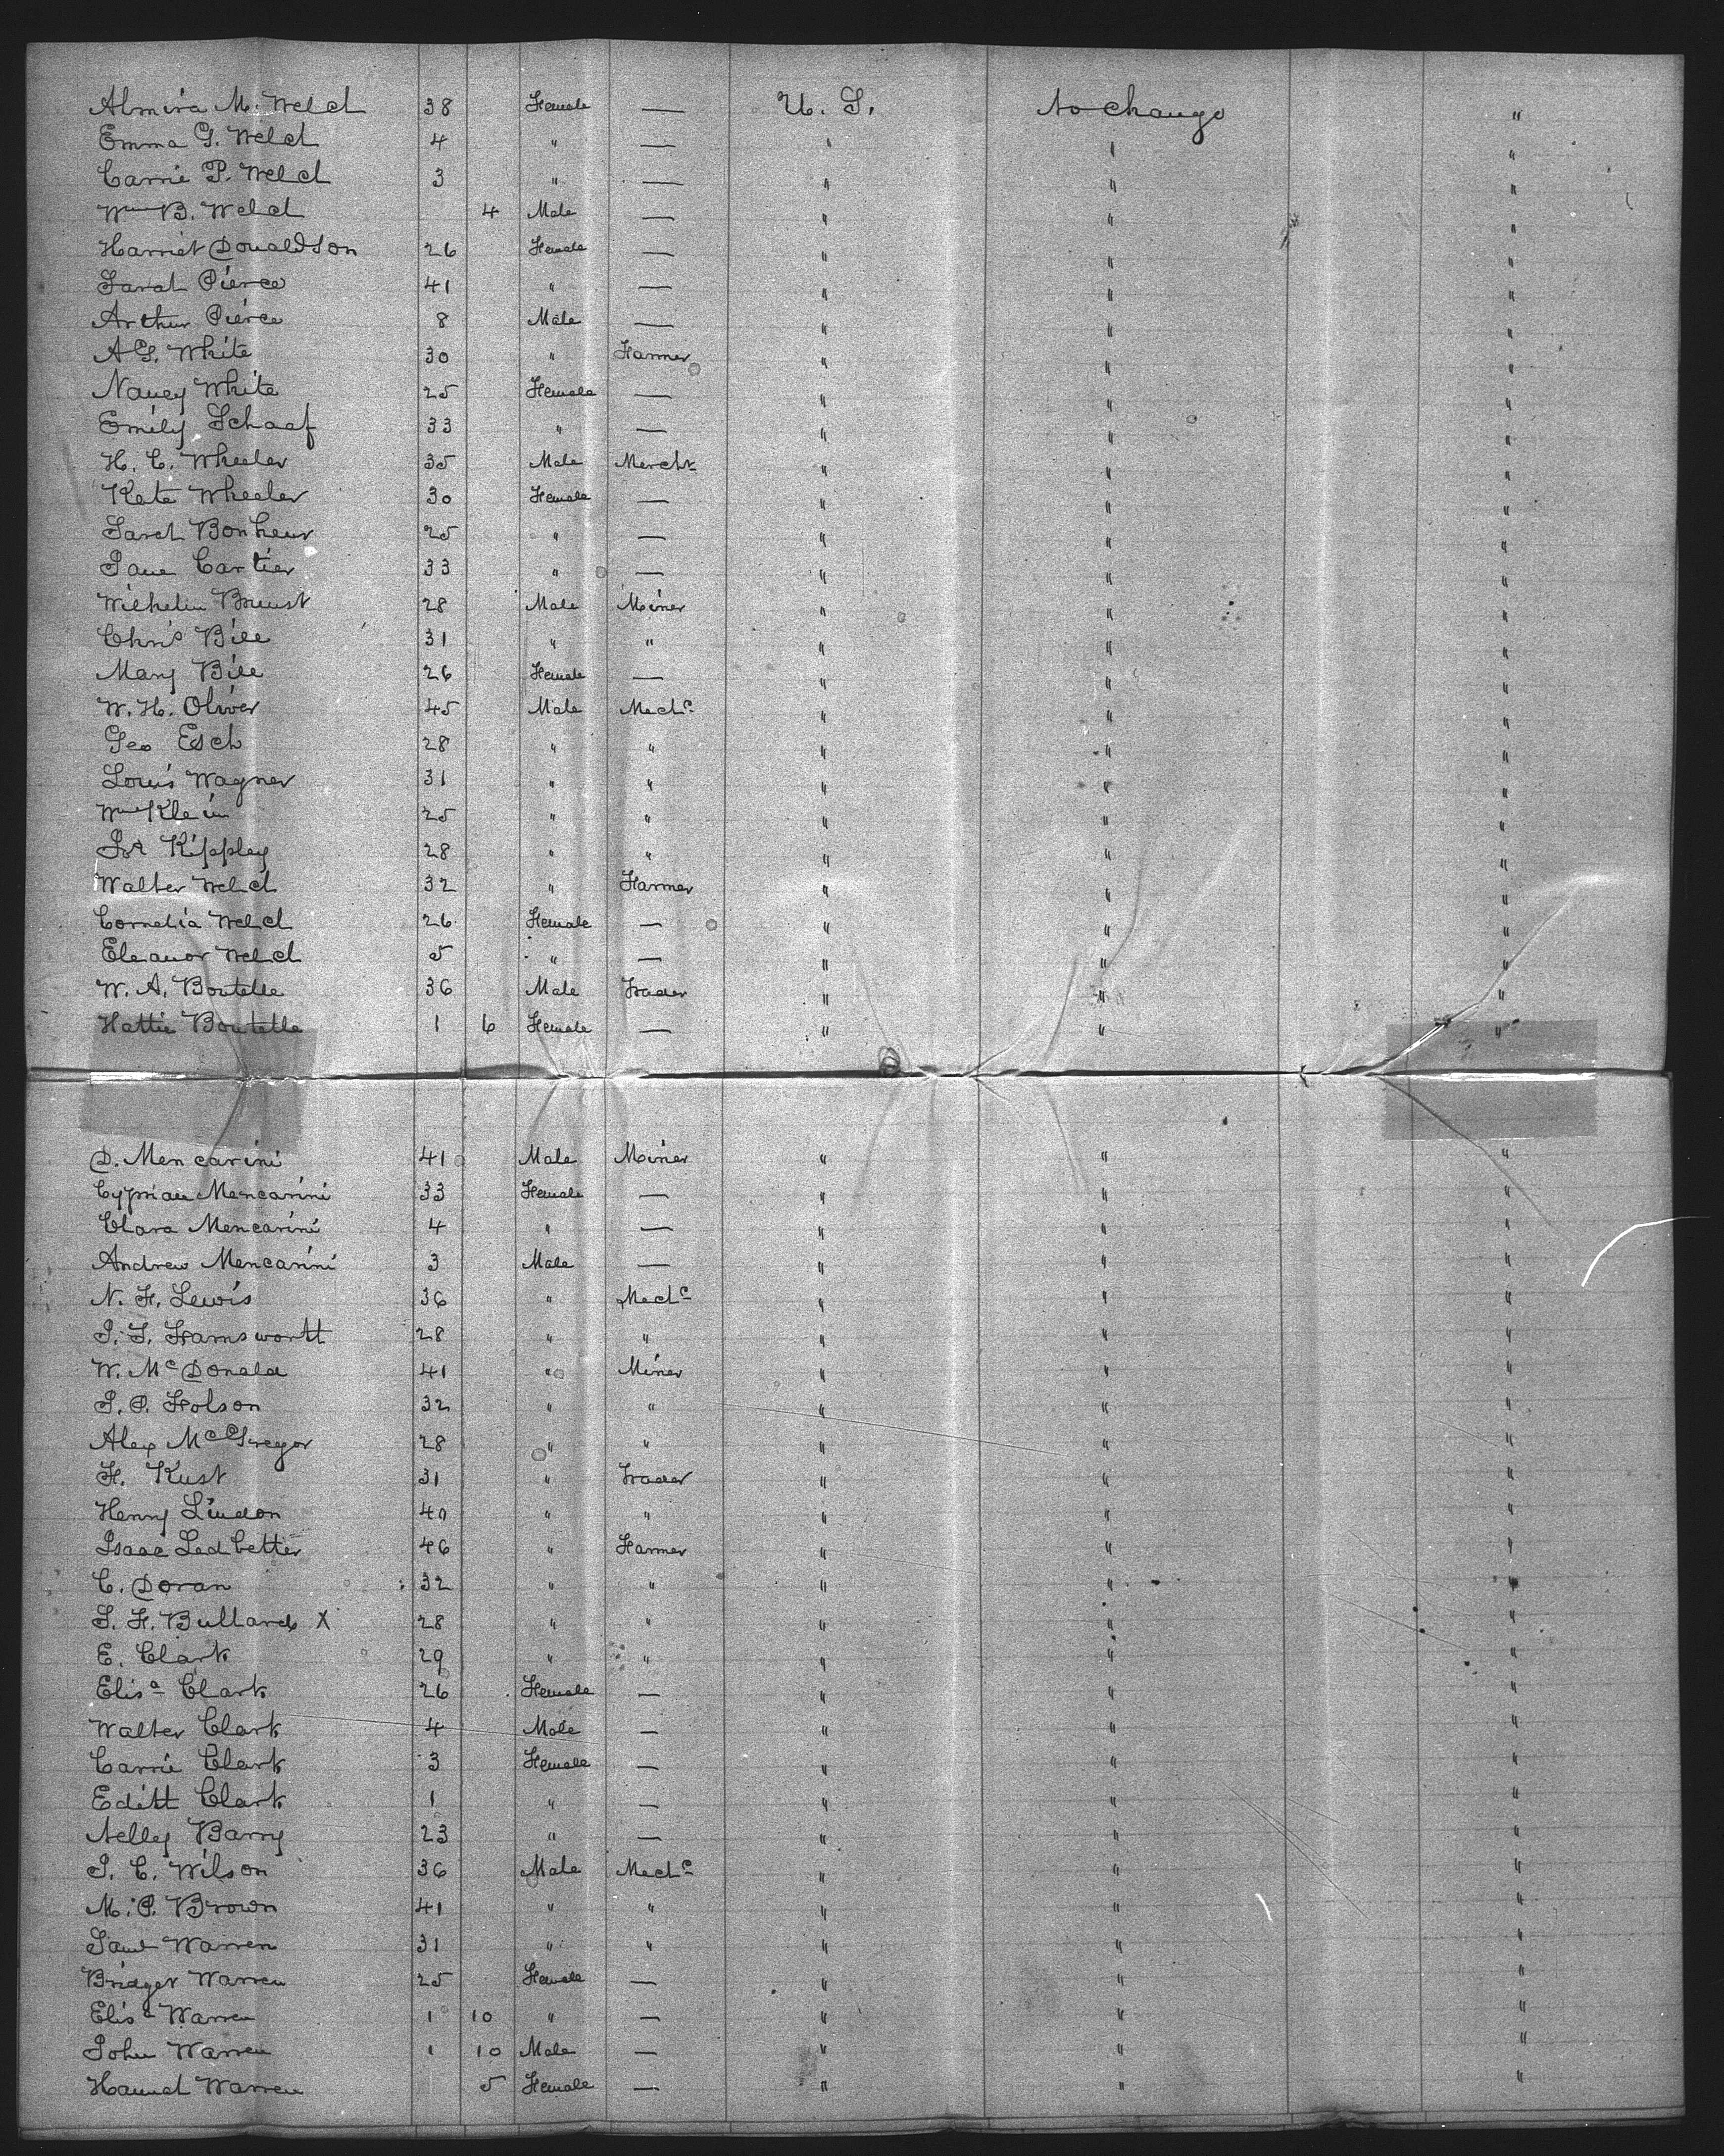 Almira M. Welch 38 Female — U. S. no change "
Emma G. Welch 4 " — " " "
Carrie P. Welch 3 " — " " "
Wm B. Welch 4 Male — " " "
Harriet Donaldson 26 Female — " " "
Sarah Pierce 41 " — " " "
Arthur Pierce 8 Male — " " "
A G. White 30 " Farmer " " "
Nancy White 25 Female — " " "
Emily Schaaf 33 " — " " "
H. C. Wheeler 35 Male Mercht " " "
Kate Wheeler 30 Female — " " "
Sarah Bonheur 25 " — " " "
Jane Cartier 33 " — " " "
Wilhelm Breust 28 Male Miner " " "
Chris Bill 31 " " " " "
Mary Bill 26 Female — " " "
W. H. Oliver 45 Male Mechc " " "
Geo Esch 28 " " " " "
Louis Wagner 31 " " " " "
Wm Klein 25 " " " " "
Kippley 28 " " " " "
Walter Welch 32 " Farmer " " "
Cornelia Welch 26 Female — " " "
Eleanor Welch 5 " — " " "
W. A. Boutelle 36 Male Trader " " "
Hattie Boutelle 1 6 Female — " " "
D. Mencarini 41 Male Miner " " "
Cyprian Mencarini 33 Female — " " "
Clara Mencarini 4 " — " " "
Andrew Mencarini 3 Male — " " "
N. F. Lewis 36 " Mechc " " "
28 " " " " "
W. McDonald 41 " Miner " " "
J. P. Folson 32 " " " " "
Alex McGregor 28 " " " " "
F. Kust 31 " Trader " " "
Henry Lindon 40 " " " " "
Isaac Ledbetter 46 " Farmer " " "
C. Doran 32 " " " " "
F. Bullard X 28 " " " " "
E. Clark 29 " " " " "
Elisa Clark 26 Female — " " "
Walter Clark 4 Male — " " "
Carrie Clark 3 Female — " " "
Edith Clark 1 " — " " "
Nelly Barry 23 " — " " "
J. C. Wilson 36 Male Mechc " " "
M. P. Brown 41 " " " " "
Saml Warren 31 " " " " "
Bridget Warren 25 Female — " " "
Elisa Warren 1 10 " — " " "
John Warren 1 10 Male — " " "
Hannah Warren 5 Female — " " "